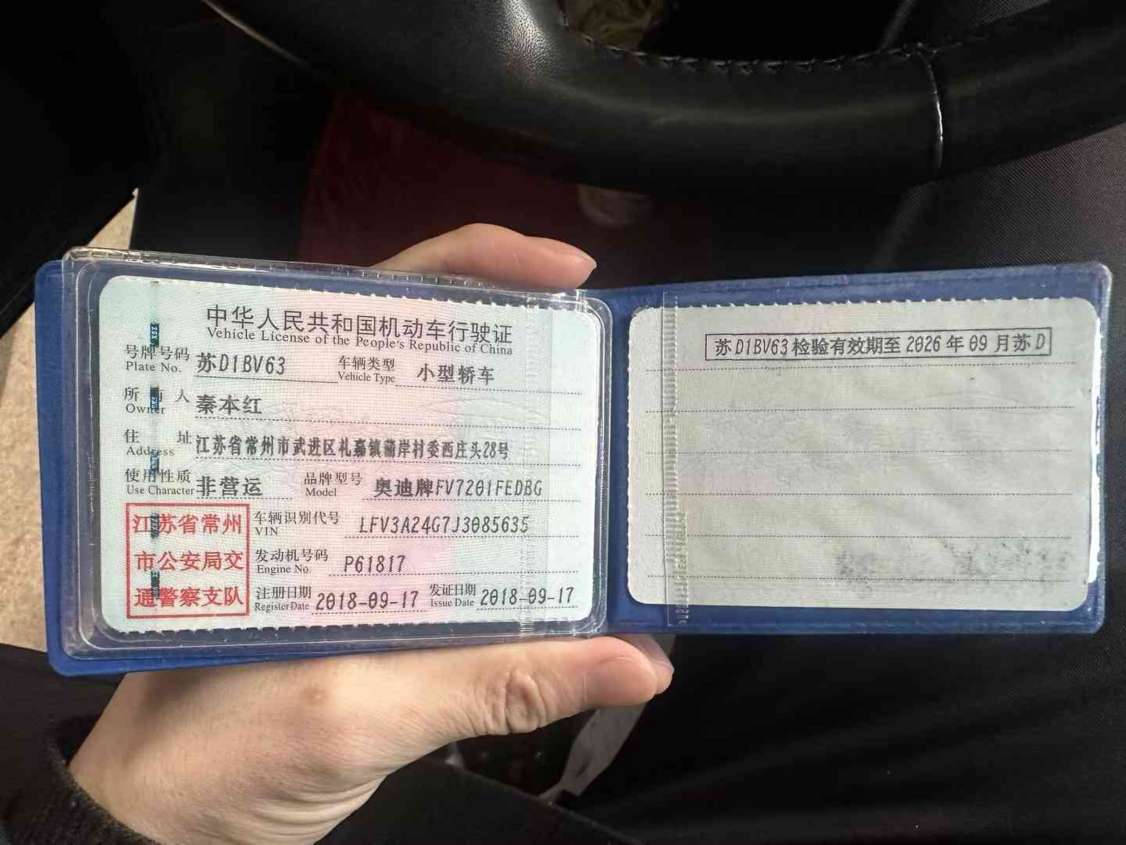 中华人民共和国机动车行驶证
Vehicle License of the People's Republic of China
号牌号码 苏D1BV63 车辆类型 小型轿车
Plate No. Vehicle Type
所有人 秦本红
Owner
住址 江苏省常州市武进区礼嘉镇蒲岸村委西庄头28号
Address
使用性质 非营运 品牌型号 奥迪牌FV7201FEDBG
Use Character Model
江苏省常州 车辆识别代号 LFV3A24G7J3085635
VIN
市公安局交 发动机号码 P61817
Engine No.
通警察支队 注册日期 2018-09-17 发证日期 2018-09-17
Register Date Issue Date
苏D1BV63检验有效期至2026年09月苏D